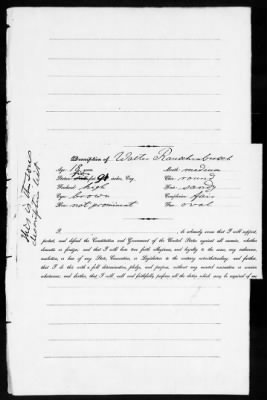 Description of Walter Rauschenbusch
Age: 18 years
Mouth: medium
Stature: five feet 9½ inches, Eng.
Chin: round
Forehead: high
Hair: sandy
Eyes: brown
Complexion: fair
Nose: not prominent
Face: oval
This is the sons
descriptive list
I, , do solemnly swear that I will support,
protect, and defend the Constitution and Government of the United States against all enemies, whether
domestic or foreign, and that I will bear true faith, allegiance, and loyalty to the same, any ordinance,
resolution, or law of any State, Convention, or Legislature to the contrary notwithstanding; and further,
that I do this with a full determination, pledge, and purpose, without any mental reservation or evasion
whatsoever; and further, that I will well and faithfully perform all the duties which may be required of me